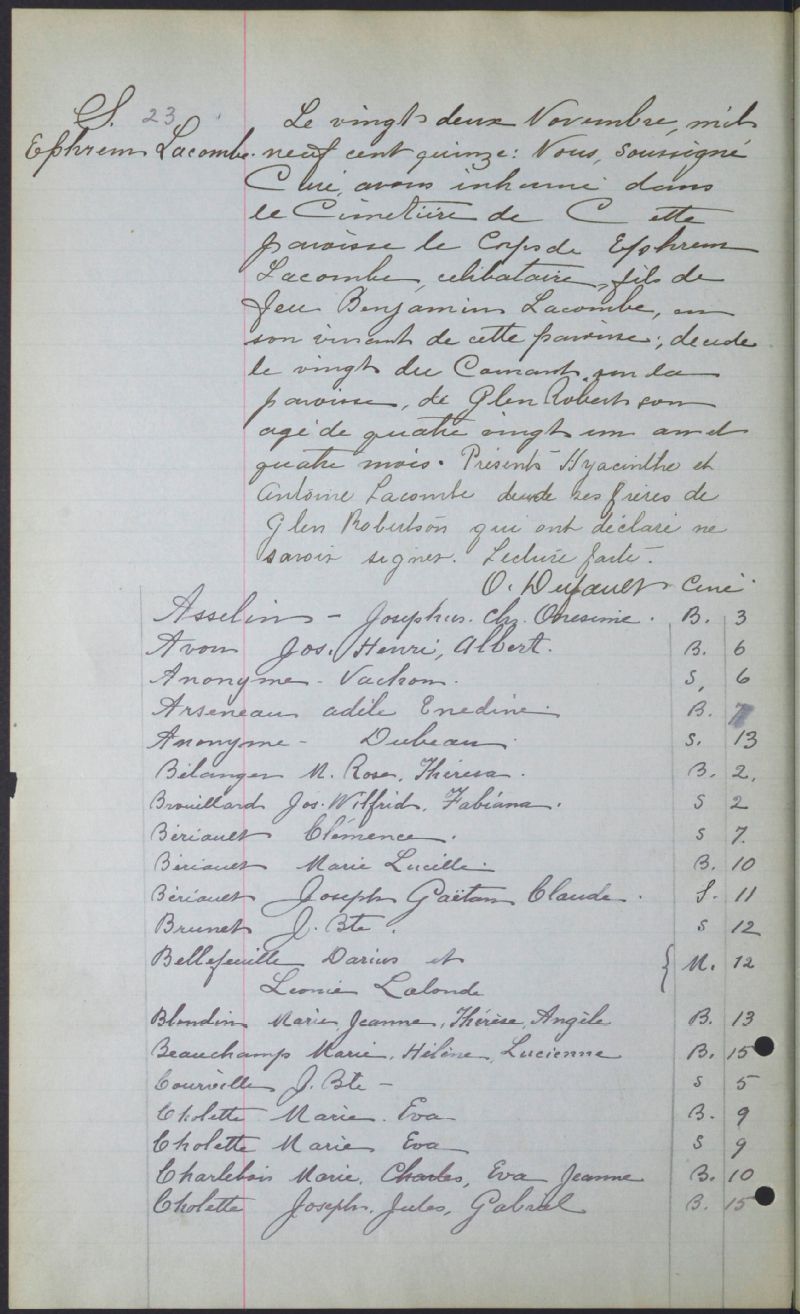 S. 23
Ephrem Lacombe.
Le vingt deux Novembre, mil
neuf cent quinze: Nous, soussigné
Curé, avons inhumé dans
le Cimetière de Cette
paroisse le Corps de Ephrem
Lacombe, celibataire, fils de
feu Benjamin Lacombe, en
son vivant de cette paroisse; decede
le vingt du Courant en la
paroisse, de Glen Robertson
agé de quatre vingt un an et
quatre mois. Présents Hyacinthe et
Antoine Lacombe deux de ses frères de
Glen Robertson qui ont déclaré ne
savoir signer. Lecture faite.
O. Dufault Curé
Asselin - Josephus. Chs. Onesime. B. 3
Avon Jos. Henri, Albert. B. 6
Anonyme - Vachon. S, 6
Arseneau adèle Enedine. B. 7
Anonyme - Dubeau. S. 13
Bélanger M. Rose, Thérèsa. B. 2,
Brouillard Jos. Wilfrid, Fabiana. S 2
Bériault Clémence. S 7.
Bériault Marie Lucille. B. 10
Bériault Joseph Gaëtan Claude. S. 11
Brunet J. Bte. S 12
Bellefeuille Darius et { M. 12
Leonie Lalonde
Blondin Marie, Jeanne, Thérèse, Angèle B. 13
Beauchamp Marie, Hélène, Lucienne B. 15
Courville J. Bte - S 5
Cholette Marie. Eva B. 9
Cholette Marie Eva S 9
Charlebois Marie, Charles, Eva Jeanne B. 10
Cholette Joseph, Jules, Gabriel B. 15